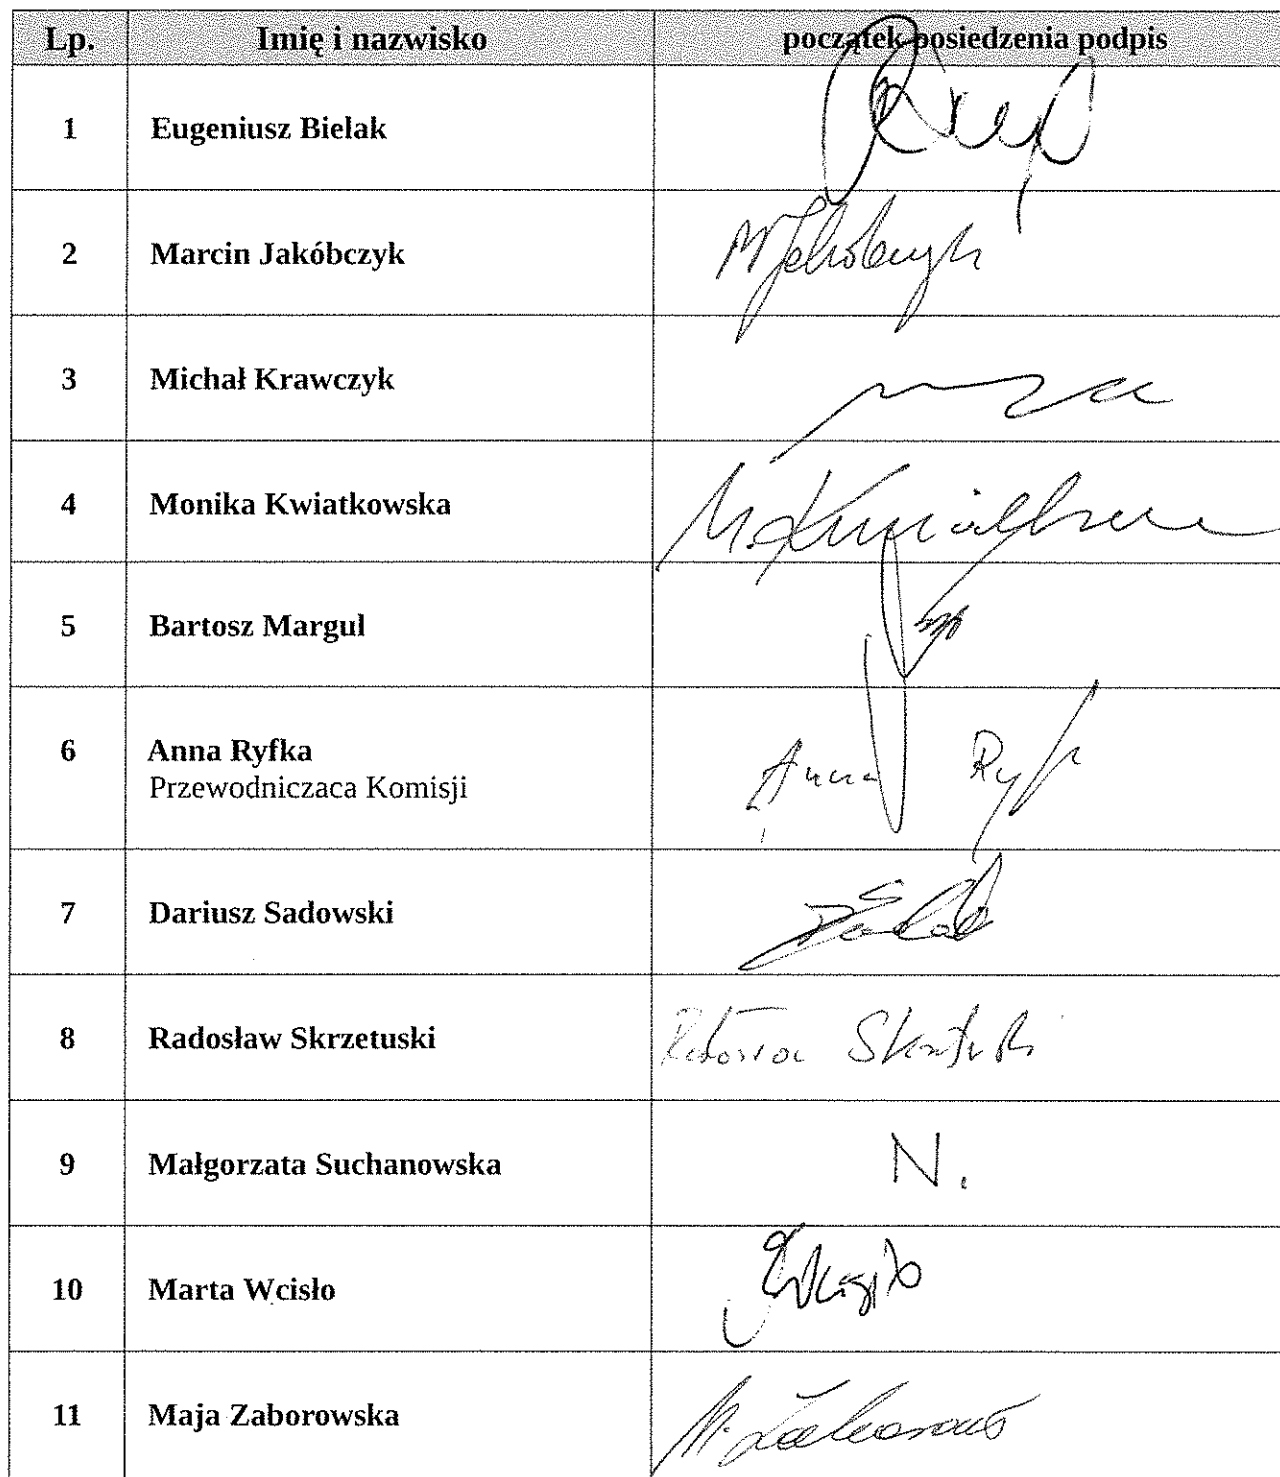 Lp. Imię i nazwisko początek posiedzenia podpis
1 Eugeniusz Bielak
2 Marcin Jakóbczyk
3 Michał Krawczyk
4 Monika Kwiatkowska
5 Bartosz Margul
6 Anna Ryfka
Przewodniczaca Komisji
Anna
7 Dariusz Sadowski
8 Radosław Skrzetuski
9 Małgorzata Suchanowska N.
10 Marta Wcisło
11 Maja Zaborowska